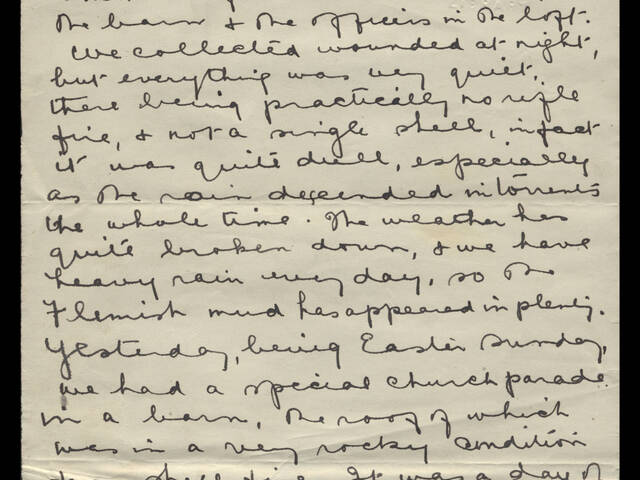 the barn & the officers in the loft.
We collected wounded at night,
but everything was very quiet,
there being practically no rifle
fire, & not a single shell, in fact
it was quite dull, especially
as the rain descended in torrents
the whole time. The weather has
quite broken down, & we have
heavy rain every day, so the
Flemish mud has appeared in plenty.
Yesterday, being Easter Sunday,
we had a special church parade
in a barn, the roof of which
was in a very rocky condition
from shell fire. It was a day of